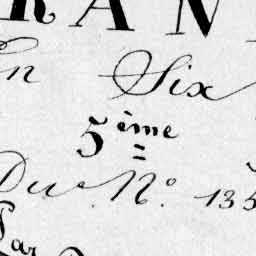 RAN
En Six
5ème
Du N.º 135
Par